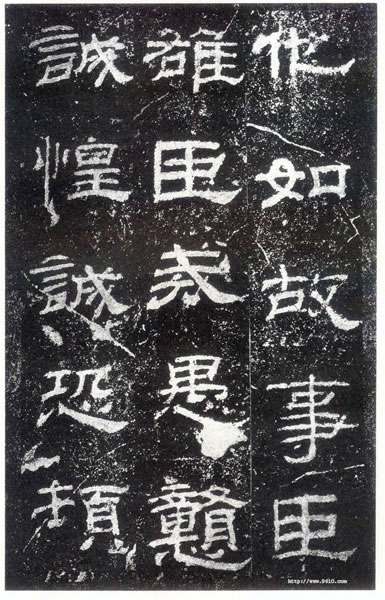 他如故事臣
雄臣戒愚戇
誠惶誠恐頓
http://www.9610.